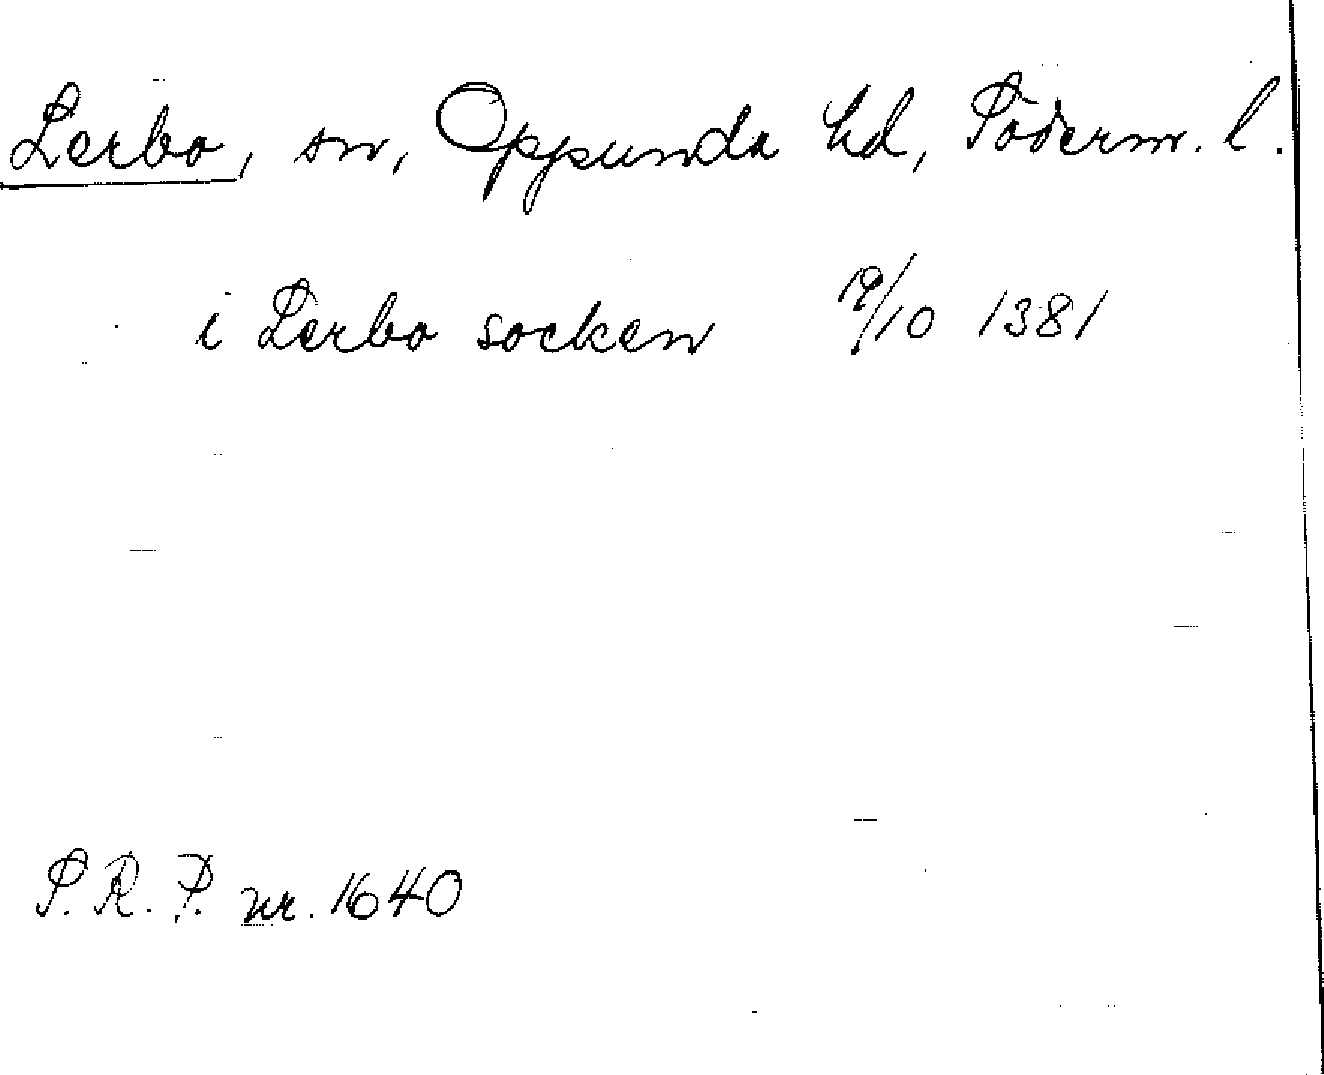 Lerbo, sn, Oppunda hd, Söderm. l.
i Lerbo socken 19/10 1381
S.R.P. nr. 1640